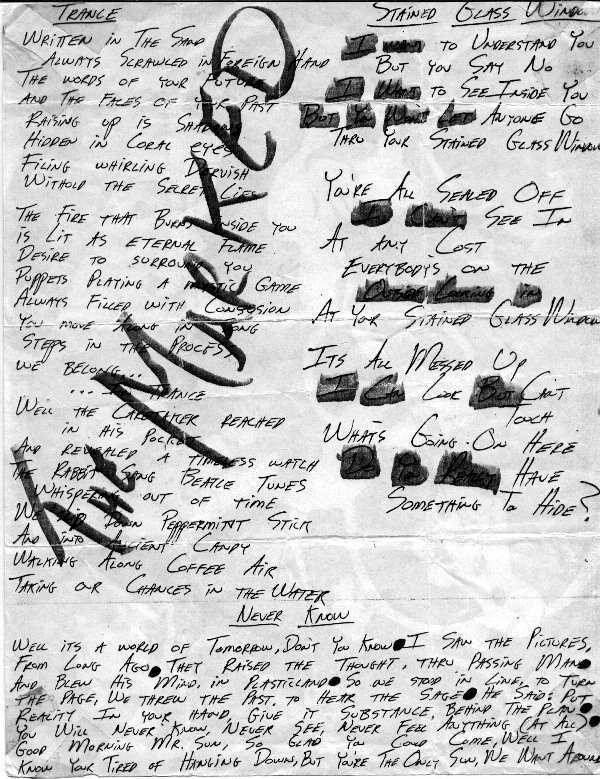 TRANCE
WRITTEN IN THE SAND
ALWAYS SCRAWLED IN FOREIGN HAND
THE WORDS OF YOUR FUTURE
AND THE FACES OF YOUR PAST
RAISING UP IS
HIDDEN IN CORAL EYES
FILING WHIRLING DERVISH
WITHOLD THE SECRET LIES
THE FIRE THAT BURNS INSIDE YOU
IS LIT AS ETERNAL FLAME
DESIRE TO SURROUND YOU
PUPPETS PLAYING A GAME
ALWAYS FILLED WITH CONFUSION
YOU MOVE ALONG IN
STEPS IN THE PROCESS
WE BELONG...
... IN TRANCE
WELL THE CARETAKER REACHED
IN HIS POCKET
AND REVEALED A TIMELESS WATCH
THE RABBIT SANG BEATLE TUNES
WHISPERING OUT OF TIME
WE DOWN PEPPERMINT STICK
AND INTO ANCIENT CANDY
WALKING ALONG COFFEE AIR
TAKING OUR CHANCES IN THE WATER
THE MARKTED
STAINED GLASS WINDOW
I WANT TO UNDERSTAND YOU
BUT YOU SAY NO
I WANT TO SEE INSIDE YOU
BUT YOU WON'T LET ANYONE GO
THRU YOUR STAINED GLASS WINDOW
YOU'RE ALL SEALED OFF
I CAN'T SEE IN
AT ANY COST
EVERYBODY'S ON THE
OUTSIDE LOOKING IN
AT YOUR STAINED GLASS WINDOW
ITS ALL MESSED UP
I CAN LOOK BUT CAN'T
TOUCH
WHATS GOING ON HERE
DO YOU REALLY HAVE
SOMETHING TO HIDE?
NEVER KNOW
WELL ITS A WORLD OF TOMORROW, DON'T YOU KNOW. I SAW THE PICTURES,
FROM LONG AGO. THEY RAISED THE THOUGHT, THRU PASSING MAN.
AND BLEW HIS MIND, IN PLASTICLAND. SO WE STOOD IN LINE, TO TURN
THE PAGE, WE THREW THE PAST, TO HEAR THE SAGE. HE SAID: PUT
REALITY IN YOUR HAND, GIVE IT SUBSTANCE, BEHIND THE PLAN.
YOU WILL NEVER KNOW, NEVER SEE, NEVER FEEL ANYTHING (AT ALL).
GOOD MORNING MR. SUN, SO GLAD YOU COULD COME, WELL I
KNOW YOUR TIRED OF HANGING DOWN, BUT YOU'RE THE ONLY SUN, WE WANT AROUND